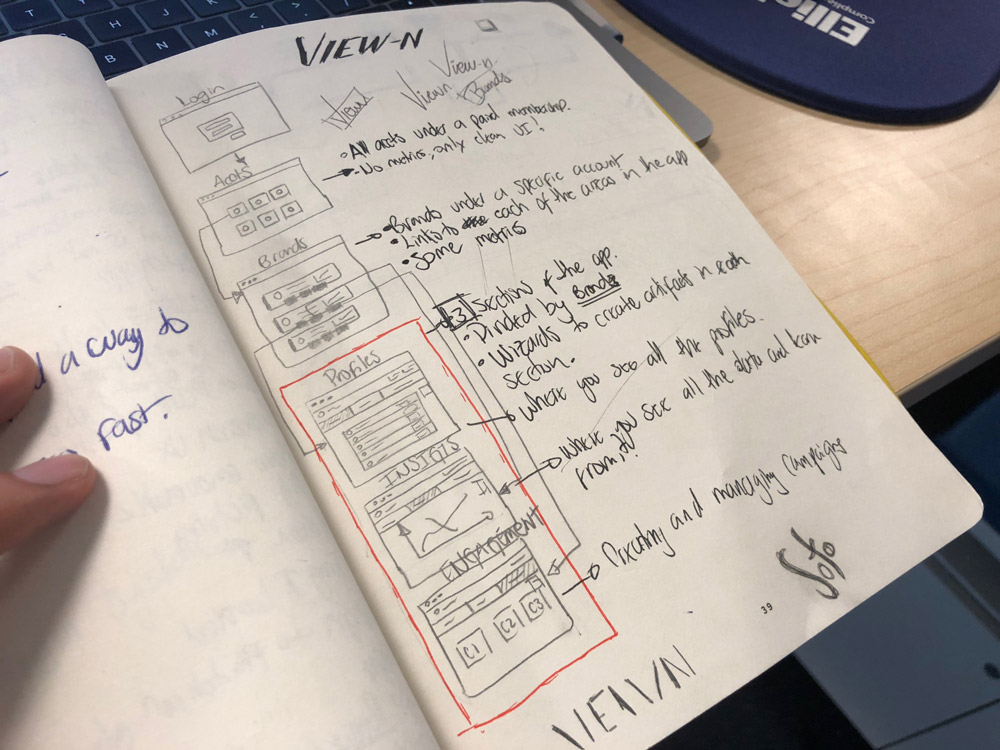 VIEW-N
View-n
View
View
Brands
Login
• All accts under a paid membership.
• No metrics, only clean UI!
Accts
• Brands under a specific account
• Links to each of the areas in the app
• Some metrics
Brands
• 3 section of the app.
• Divided by Brands
• Wizards to create artifacts in each
section.
Profiles
Where you see all the profiles.
INSIGTS
Where you see all the data and learn
from it!
ENGAGEMENT
and managing campaigns
C1 C2 C3
Soto
39
VIEW/N
d a way to
fast.
Elli
Complia
H J K L
B N M < >